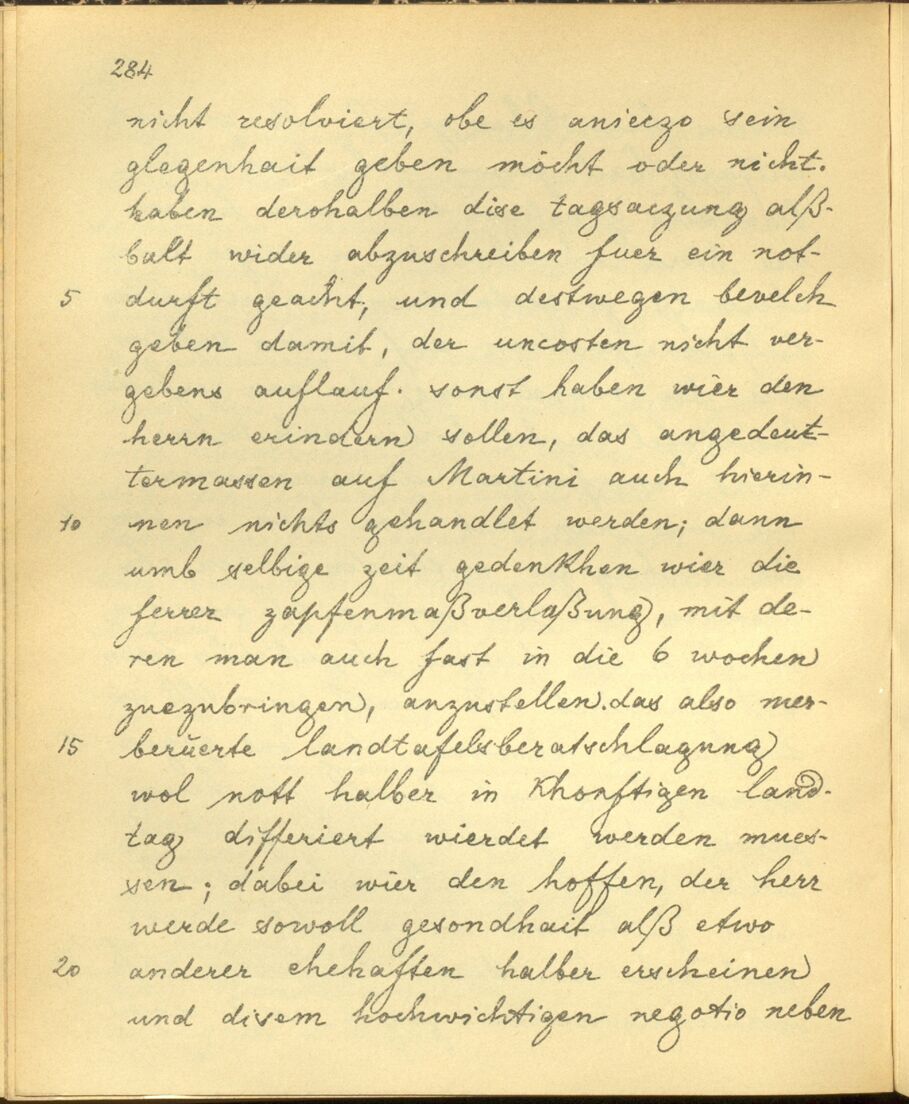 284
nicht resolviert, obe es aniezo sein
glegenhait geben möcht oder nicht.
haben derohalben dise tagsaczung alß-
balt wider abzuschreiben fuer ein not-
5 durft geacht, und destwegen bevelch
geben damit, der uncosten nicht ver-
gebens auflauf. sonst haben wier den
herrn erindern sollen, das angedeut-
termassen auf Martini auch hierin-
10 nen nichts gehandlet werden; dann
umb selbige zeit gedenkhen wier die
ferrer zapfenmaßverlaßung, mit de-
ren man auch fast in die 6 wochen
zuezubringen, anzustellen. das also mer-
15 berüerte landtafelsberatschlagung
wol nott halber in khonftigen land-
tag differiert wierdet werden mues-
sen; dabei wier den hoffen, der herr
werde sowoll gesondhait alß etwo
20 anderer ehehaften halber erscheinen
und disem hochwichtigen negotio neben